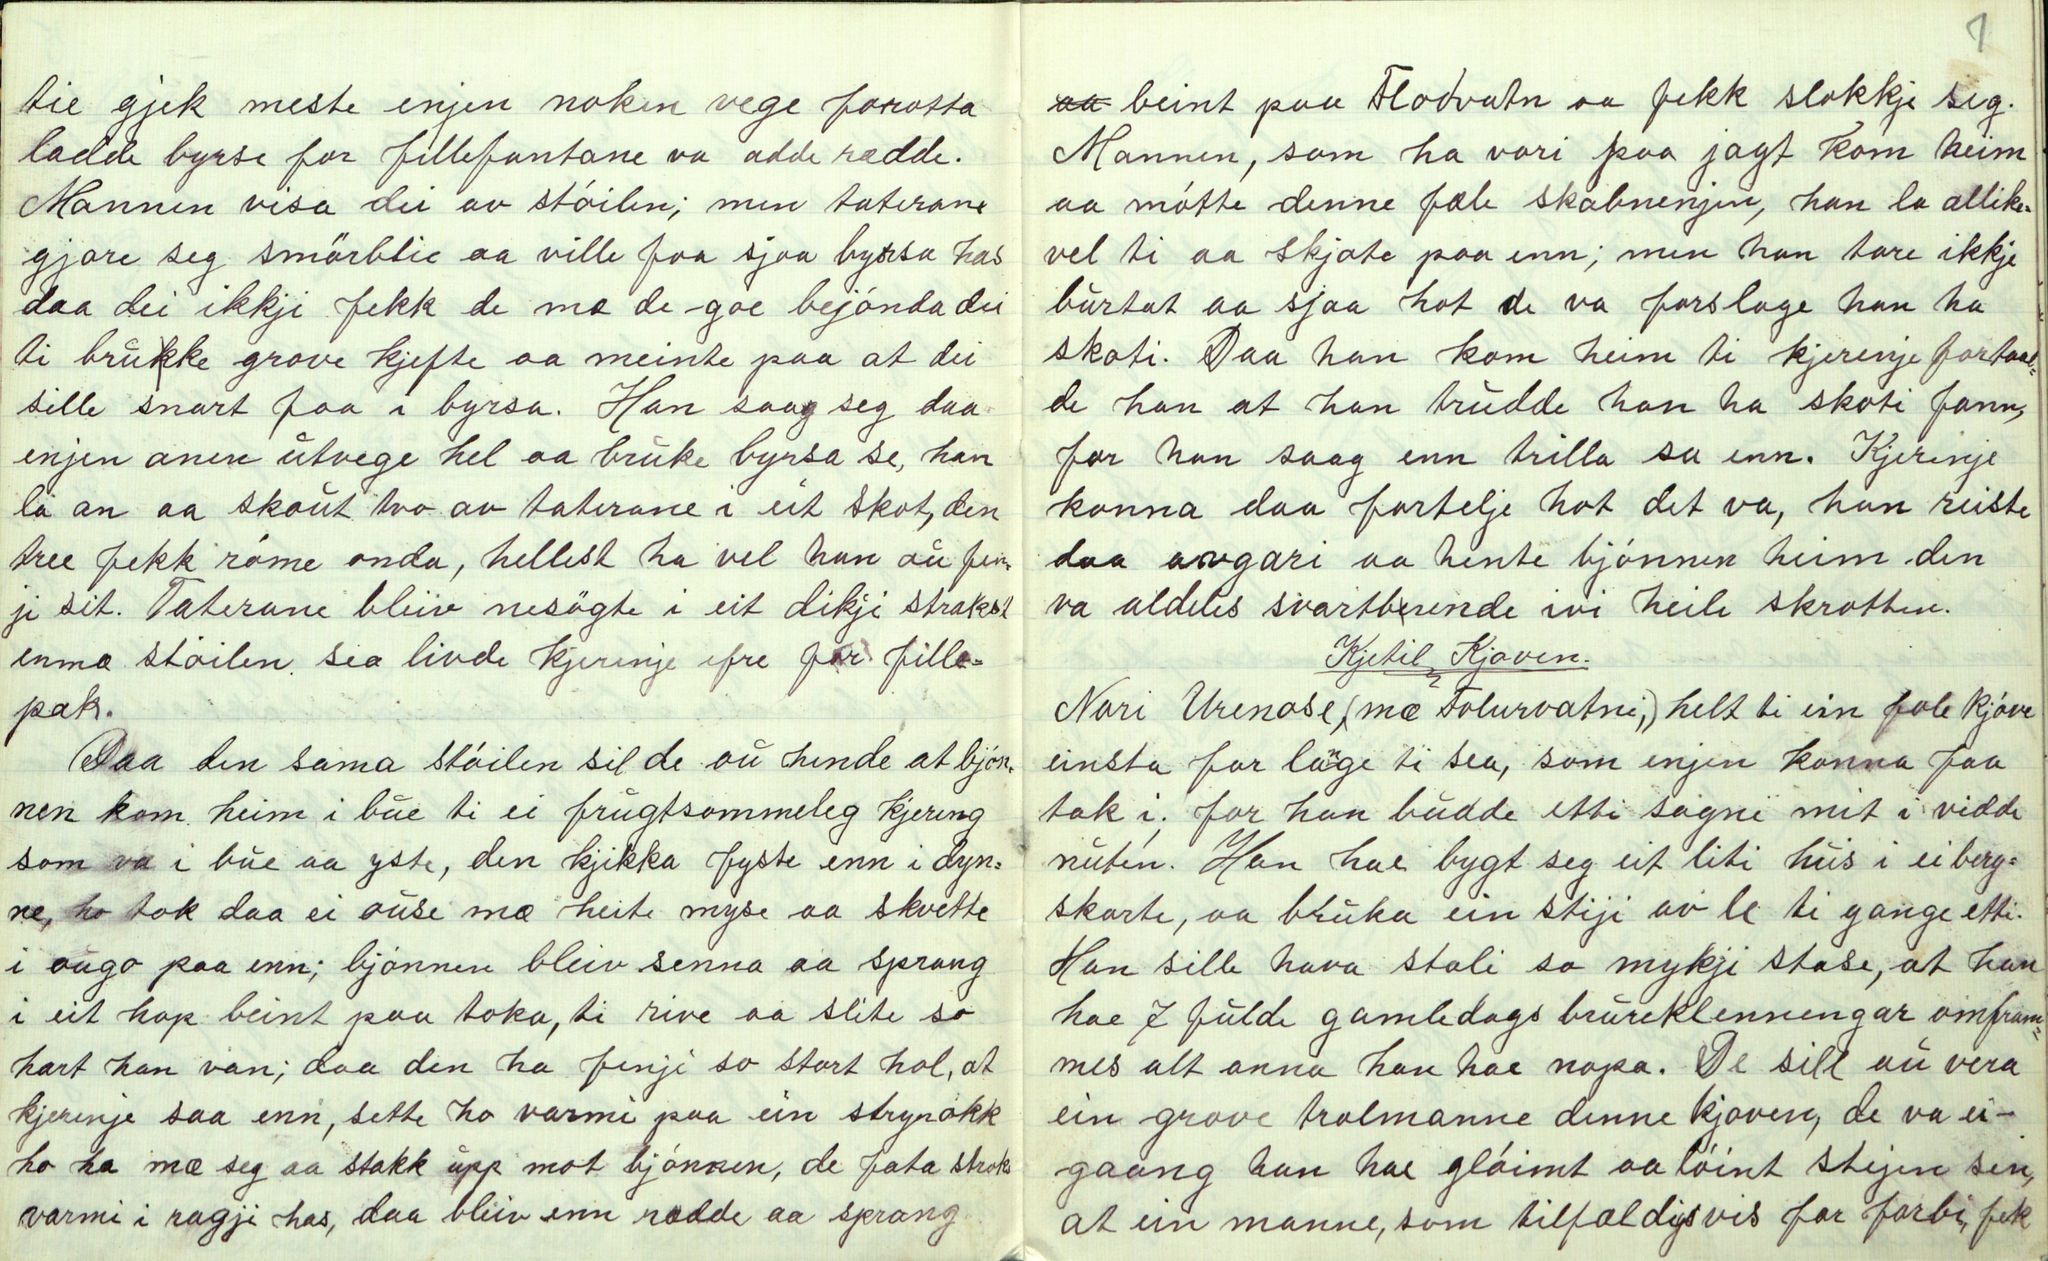 tie gjek meste enjen noken vege forotta
ladde byrse for fillefantane va adde rædde.
Mannen visa dei av stóilen; men taterane
gjore seg smörblie aa ville faa sjaa byrsa has
daa dei ikkji fekk de mæ de goe bejónda dei
ti brükke grove kjefte aa meinte paa at dei
sille snart faa i byrsa. Han saag seg daa
enjen anen ütvege hel aa brüke byrsa se, han
la an aa skaüt tvo av taterane i eit skot, den
tree fekk róme onda, hellest ha vel han aü fen-
ji sit. Taterane bleiv nesögte i eit dikji strakst
enmæ stóilen sea livde kjerinje efre for fille-
pak.
Daa den sama stóilen sil de aü hende at bjón-
nen kom heim i büe ti ei frügtsommeleg kjering
som va i büe aa yste, den kjikka fyste enn i dyn-
ne, ho tok daa ei aüse mæ heite myse aa skvette
i aügo paa enn; bjónnen bleiv senna aa sprang
i eit hop beint paa toka, ti rive aa slite so
hart han van; daa den ha fenji so stort hol, at
kjerenje saa enn, sette ho varmi paa ein stryrokk
ho ha mæ seg aa stakk üpp mot bjónnen, de fata straks
varmi i ragji has, daa bleiv enn rædde aa sprang
1
aa beint paa Flodvatn aa fekk slokkje seg.
Mannen, som ha vori paa jagt kom heim
aa mótte denne fæle skabnenjen, han la allike-
vel ti aa skjote paa enn; men han tore ikkje
bürtat aa sjaa hot de va forslage han ha
skoti. Daa han kom heim ti kjerenje fortaal-
de han at han trüdde han ha skoti fann,
for han saag enn trilla sa enn. Kjerinje
konna daa fortelje hot det va, han reiste
daa avgari aa hente bjónnen heim den
va aldeles svartbrende ivi heile skrotten.
Kjetil Kjoven.
Nori Urenose, (mæ Folurvatni,) helt ti ein fole kjóve
einsta for lange ti sea, som enjen konna faa
tak i; for han büdde etti sogni mit i vidde
nüten. Han hae bygt seg eit liti hüs i ei berg-
skorte, aa brüka ein stiji av le ti gange etti.
Han sille hava stoli so mykji stase, at han
hae 7 fülde gamledags brüreklennengar omfram-
mes alt anna han hae nopa. De sill aü vera
ein grove trolmanne denne kjoven, de va ei-
gaang han hae glóimt aa lóint stijen sin,
at ein manne, som tilfældigsvis for forbi, fek